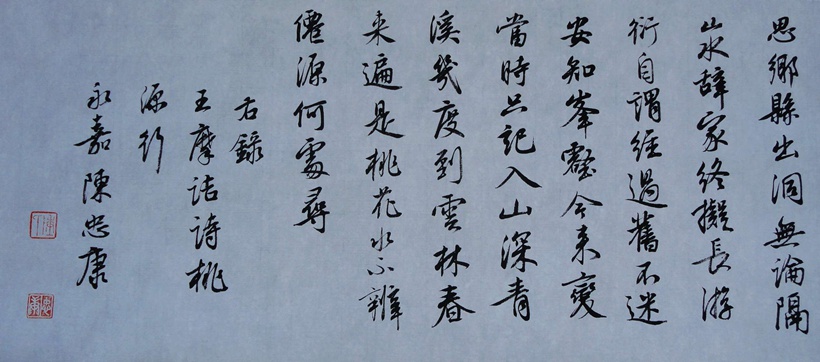 思鄉縣出洞無論隔
山水辭家終擬長游
衍自謂經過舊不迷
安知峯壑今来變
當時只記入山深青
溪幾度到雲林春
来遍是桃花水不辨
僊源何處尋
右錄
王摩詰詩桃
源行
永嘉陳忠康